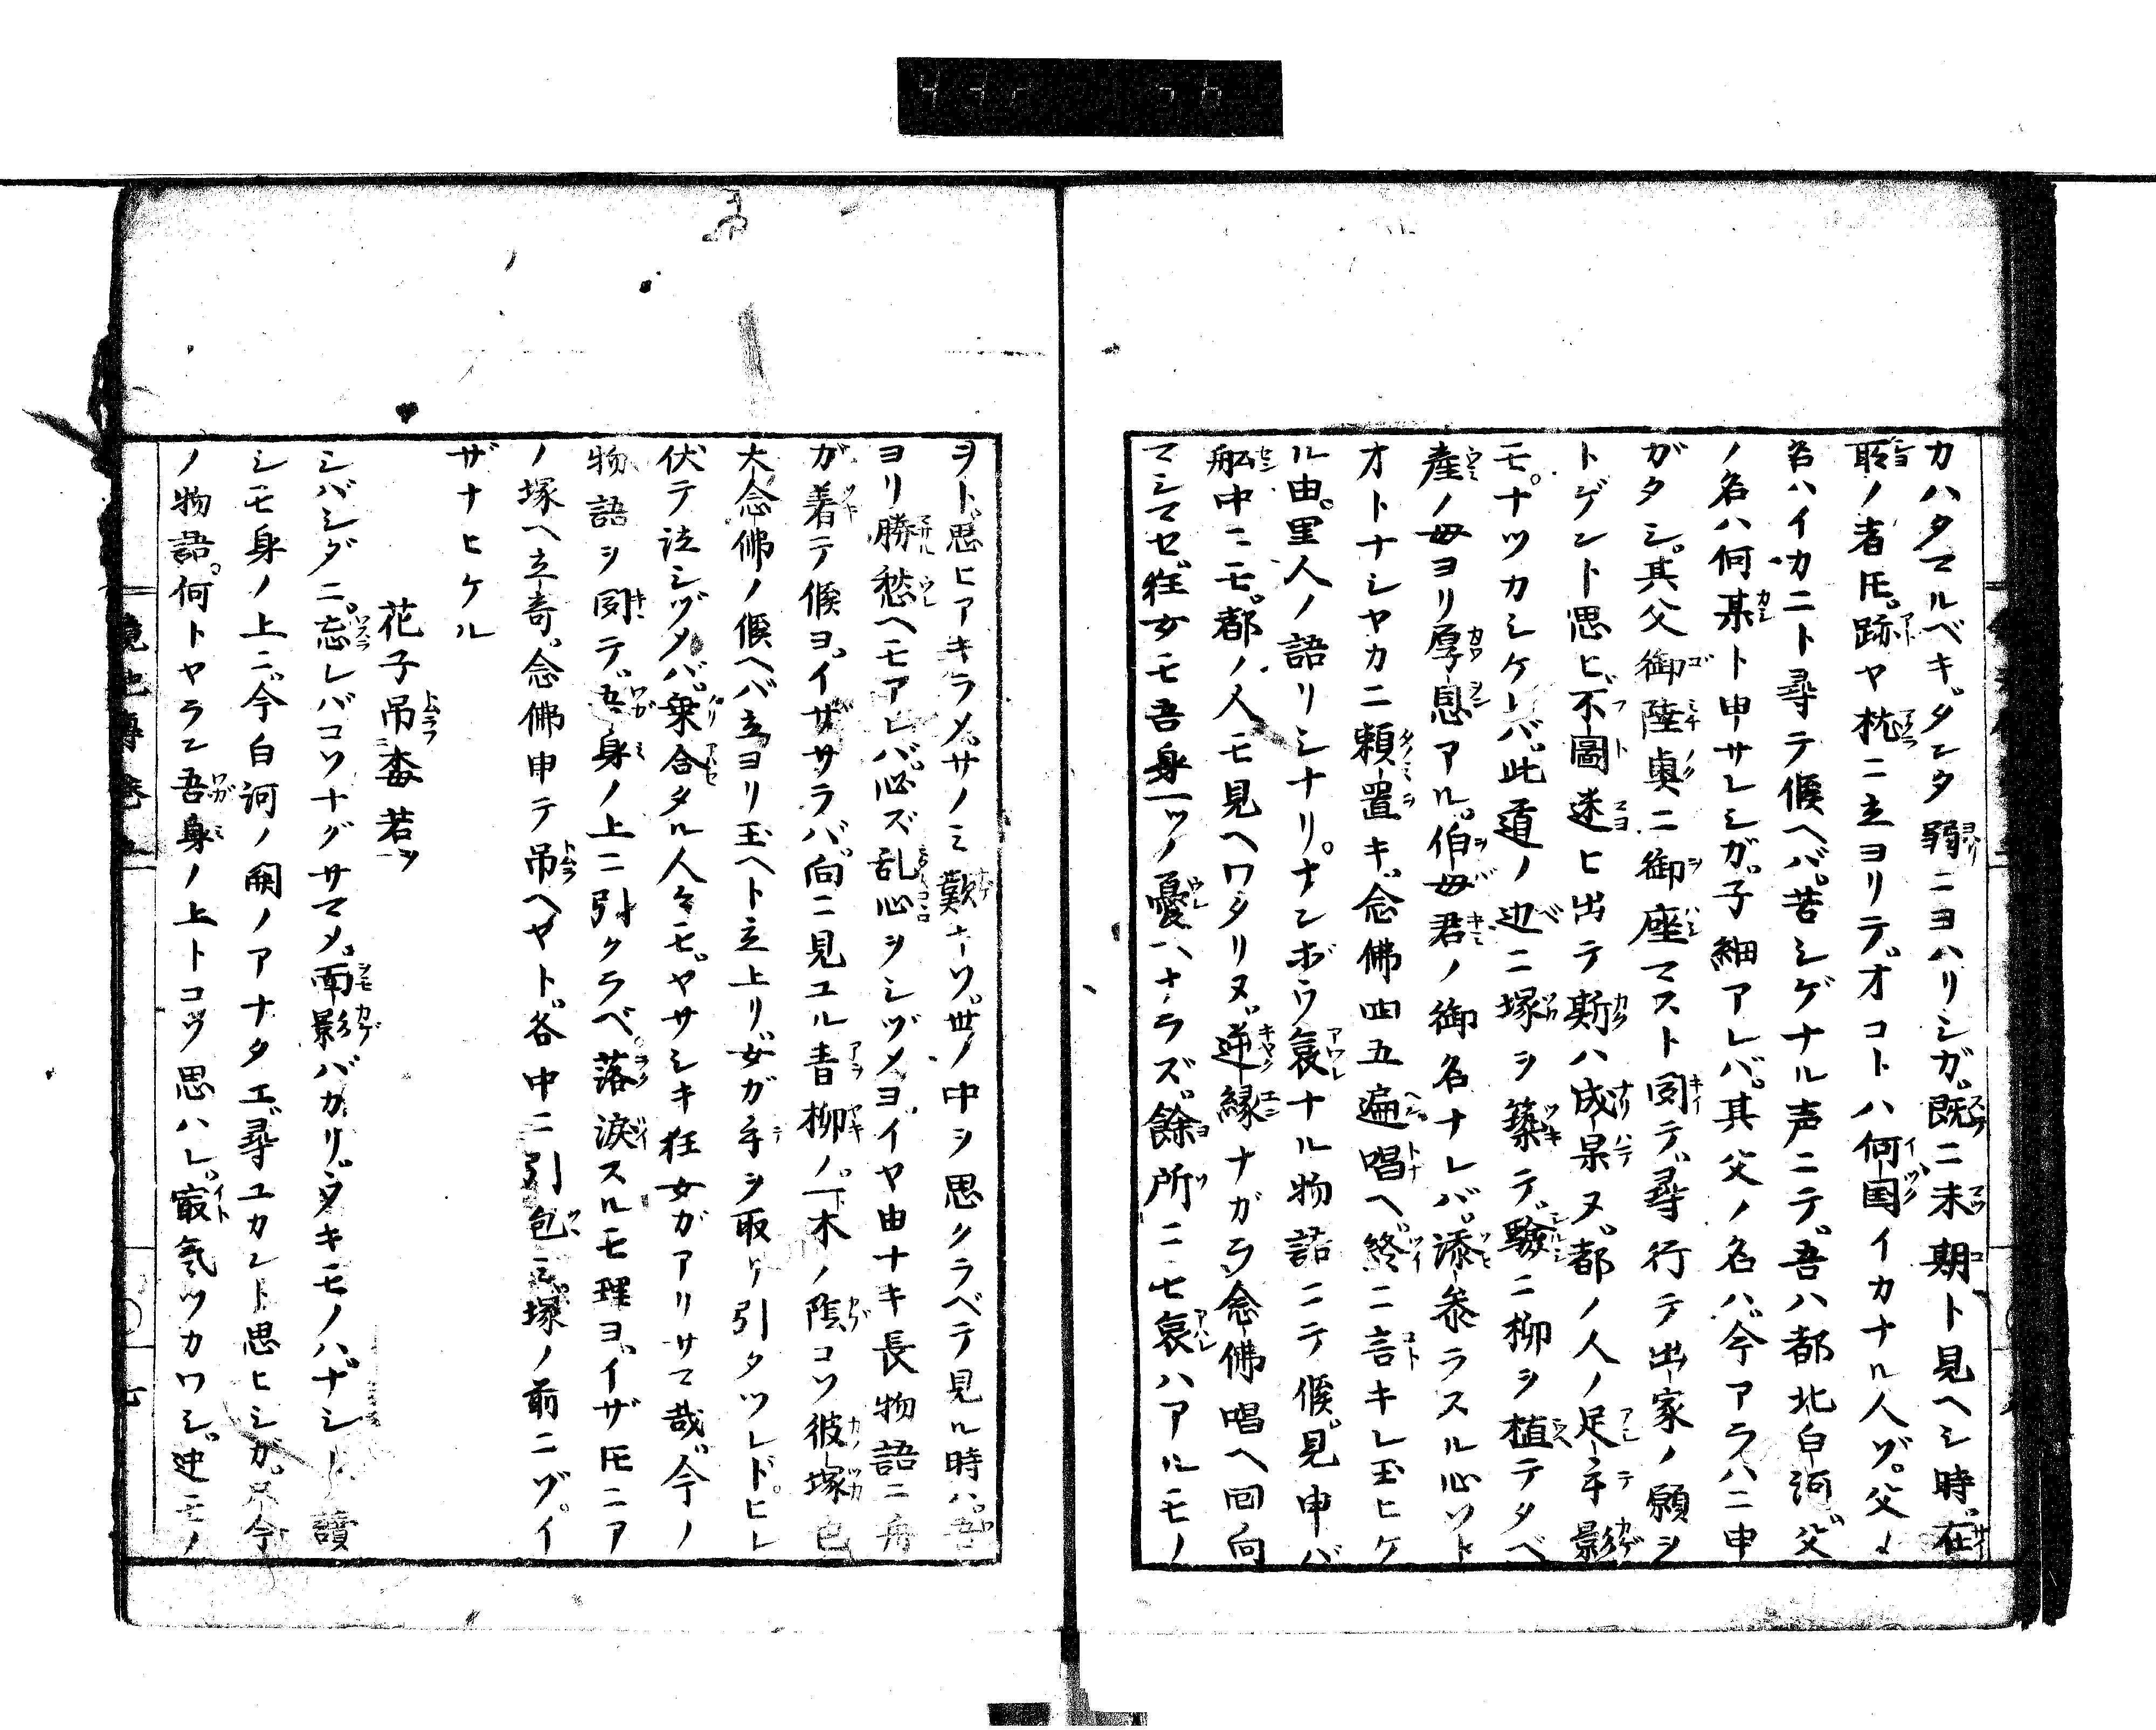 カハタマルベキ。タヾタ弱ニヨハリシガ。既ニ末期ト見ヘシ時。在
聆ノ者𪜈。跡ヤ枕ニ立ヨリテ。オコトハ何国イカナル人ゾ。父ノ
名ハイカニト尋テ候ヘバ。苦シゲナル声ニテ。吾ハ都北白河。父
ノ名ハ何某ト申サレシガ。子細アレバ。其父ノ名ハ。今アラハニ申
ガタシ。其父御陸奥ニ御座マスト聞テ。尋行テ出家ノ願ヲ
トゲント思ヒ。不圖迷ヒ出テ斯ハ成果ヌ。都ノ人ノ足手影
モ。ナツカシケレバ。此道ノ辺ニ塚ヲ築テ。驗ニ柳ヲ植テタベ
産ノ母ヨリ厚恩アル。伯母君ノ御名ナレバ。添参ラスル心ゾト
オトナシヤカニ頼置キ。念佛四五遍唱ヘ。終ニ言キレ玉ヒケ
ル由。里人ノ語リシナリ。ナンボウ哀ナル物語ニテ候。見申バ
舩中ニモ。都ノ人モ見ヘワタリヌ。逆縁ナガラ念佛唱ヘ回向
マシマセ。狂女モ吾身一ツノ憂ヘナラズ。餘所ニモ哀ハアルモノ
ヲト。思ヒアキラメ。サノミ歎ナソ。世ノ中ヲ思クラベテ見ル時ハ。吾
ヨリ勝愁ヘモアレバ。必ズ乱心ヲシヅメヨ。イヤ由ナキ長物語ニ舟
ガ着テ候ヨ。イザサラバ。向ニ見ユル青柳ノ。一木ノ陰コソ彼塚
大念佛ノ候ヘバ立ヨリ玉ヘト立上リ。女ガ手ヲ取リ引タツレド。ヒレ
伏テ泣シヅメバ。乗合タル人々モ。ヤサシキ狂女ガアリサマ哉。今ノ
物語ヲ聞テ。吾身ノ上ニ引クラベ。落涙スルモ理ヨ。イザ𪜈ニア
ノ塚ヘ立寄。念佛申テ吊ヘヤト。各中ニ引包ミ。塚ノ前ニゾ。イ
ザナヒケル
花子吊楳若ヲ
シバシダニ。忘レバコソナグサマメ。面影バカリ。ウキモノハナシト。讀
シモ身ノ上ニ。今白河ノ関ノアナタエ。尋ユカント思ヒシガ。只今
ノ物語。何トヤラン吾身ノ上トコソ思ハレ。最気ツカワシ。迚モノ